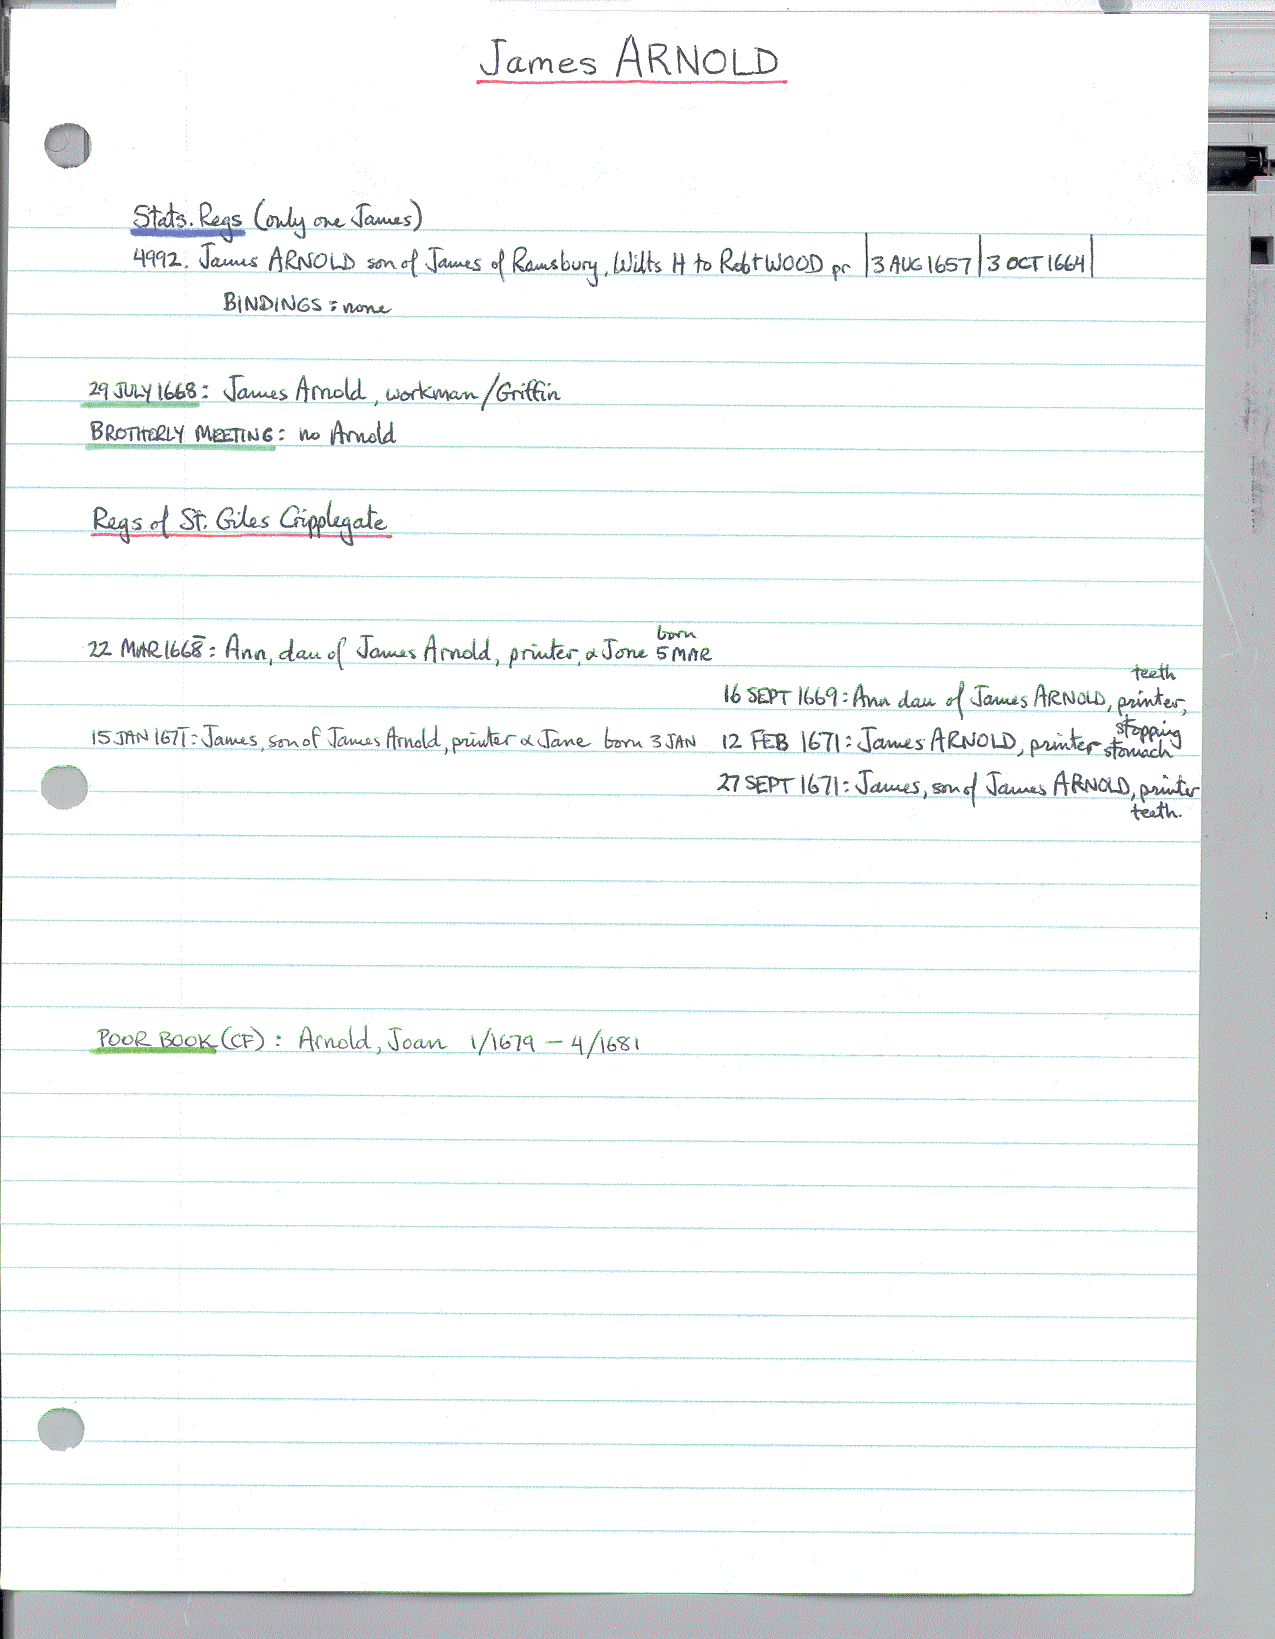 James ARNOLD
Stats. Regs (only one James)
4992. James ARNOLD son of James of Ramsbury, Wilts H to Robt WOOD pr | 3 AUG 1657 | 3 OCT 1664 |
BINDINGS: none
29 JULY 1668: James Arnold, workman/Griffin
BROTHERLY MEETING: no Arnold
Regs of St. Giles Cripplegate
born
22 MAR 1668: Ann, dau of James Arnold, printer, & Jone 5 MAR
teeth
16 SEPT 1669: Ann dau of James ARNOLD, printer,
stopping
15 JAN 1671: James, son of James Arnold, printer & Jane born 3 JAN 12 FEB 1671: James ARNOLD, printer stomach
27 SEPT 1671: James, son of James ARNOLD, printer
teeth.
POOR BOOK (CF): Arnold, Joan 1/1679 – 4/1681